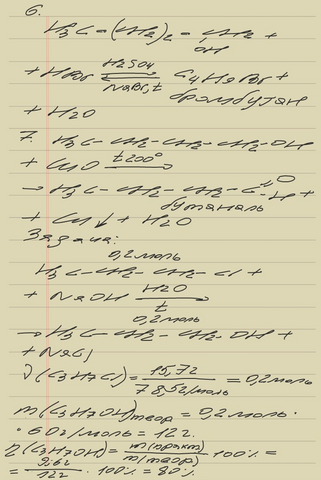 6.
H3C-(CH2)2-CH2 +
OH
+ HBr H2SO4 ⇌ NaBr, t C4H9Br +
бромбутан
+ H2O
7. H3C-CH2-CH2-CH2-OH
+ CuO t 200° →
→ H3C-CH2-CH2-C=O-H +
бутаналь
+ Cu↓ + H2O
Задача:
0,2 моль
H3C-CH2-CH2-Cl +
+ NaOH H2O → t
0,2 моль
→ H3C-CH2-CH2-OH +
+ NaCl
ν(C3H7Cl) = 15,7г / 78,5г/моль = 0,2моль
m(C3H7OH)теор = 0,2моль ·
· 60г/моль = 12г.
η(C3H7OH) = m(практ) / m(теор) · 100% =
= 9,6г / 12г · 100% = 80%